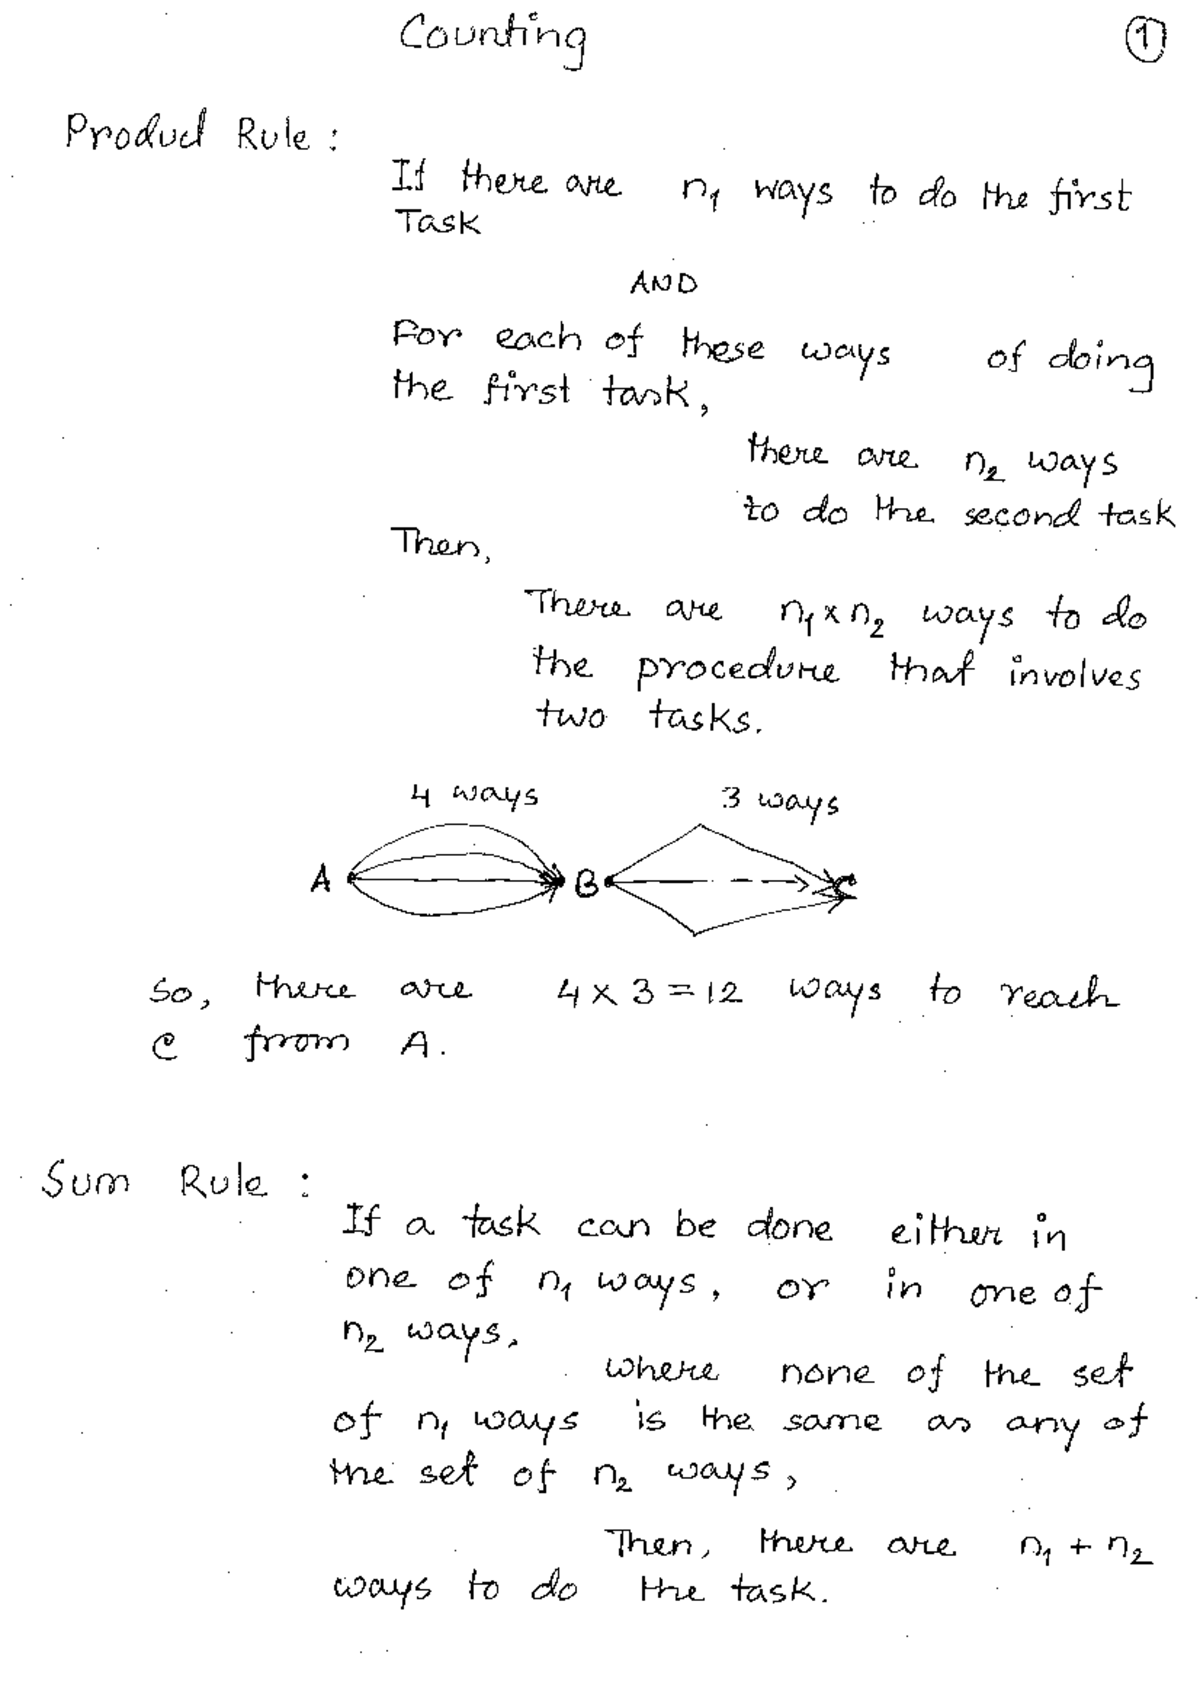 Counting
1
Product Rule :
If there are n₁ ways to do the first
Task
AND
For each of these ways of doing
the first task,
there are n₂ ways
to do the second task
Then,
There are n₁ x n₂ ways to do
the procedure that involves
two tasks.
4 ways 3 ways
A B C
So, there are 4 x 3 = 12 ways to reach
C from A.
Sum Rule :
If a task can be done either in
one of n₁ ways, or in one of
n₂ ways,
where none of the set
of n₁ ways is the same as any of
the set of n₂ ways,
Then, there are n₁ + n₂
ways to do the task.